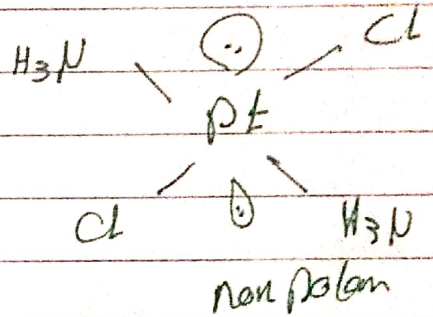 H₃N Cl
Pt
Cl H₃N
non polar